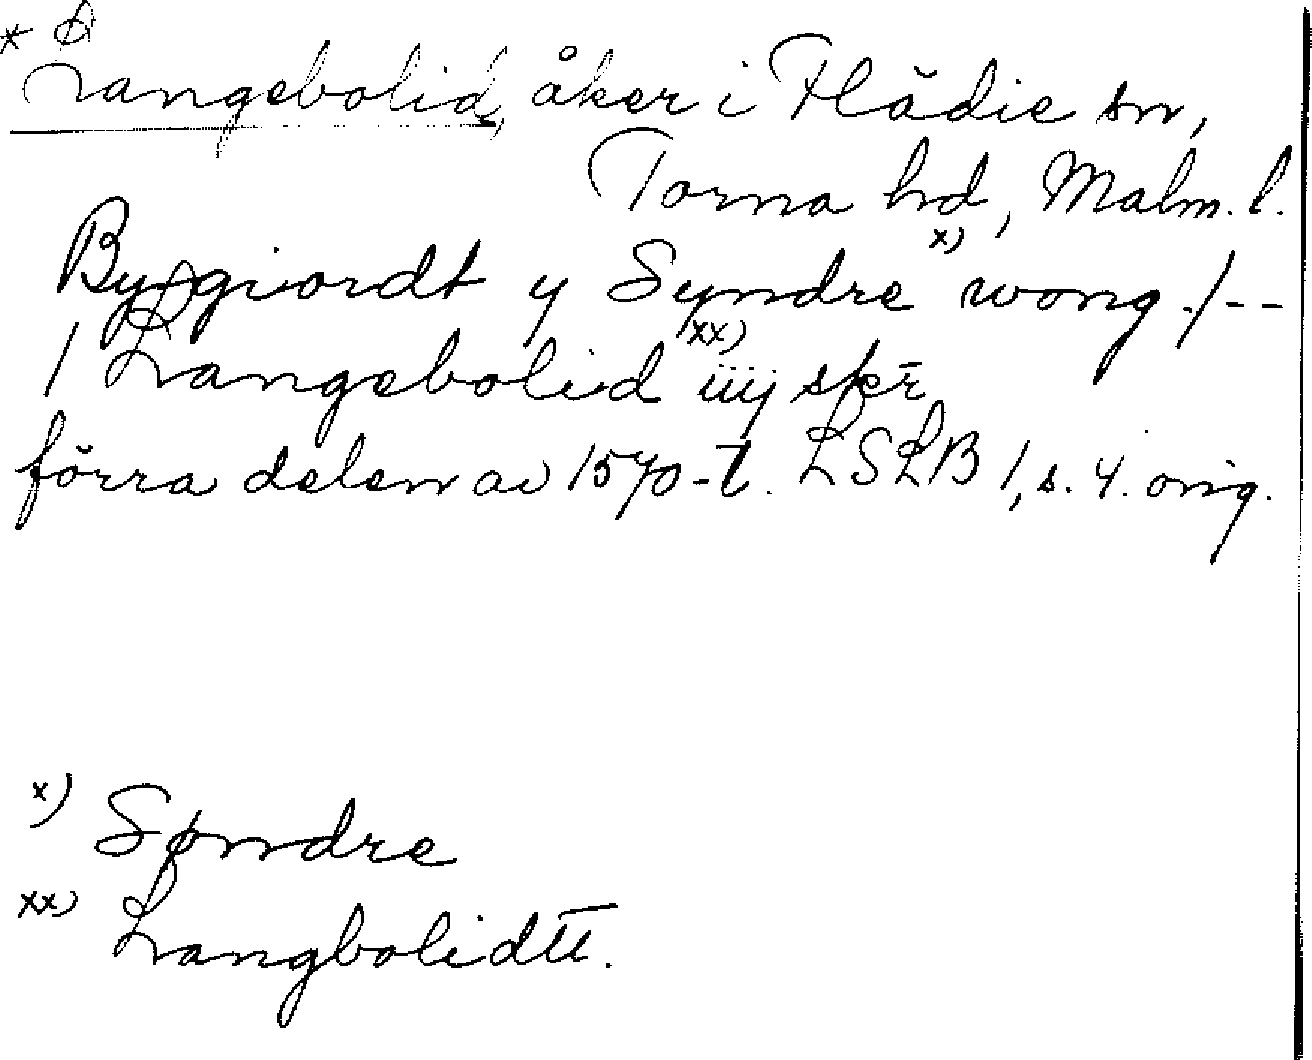 * Langebolid, åker i Flädie sn,
Torna hd, Malm. l.
Byggiordt y Syndre x) wong ./--
/ Langebolid xx) iiij skr
förra delen av 1570-t. LSLB 1, s. 4. orig.
x) Søndre
xx) Langbolidtt.